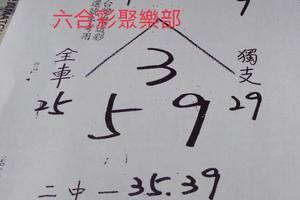 六合彩聚樂部
9
全車
3
獨支
25
5
9
29
二中一35.39